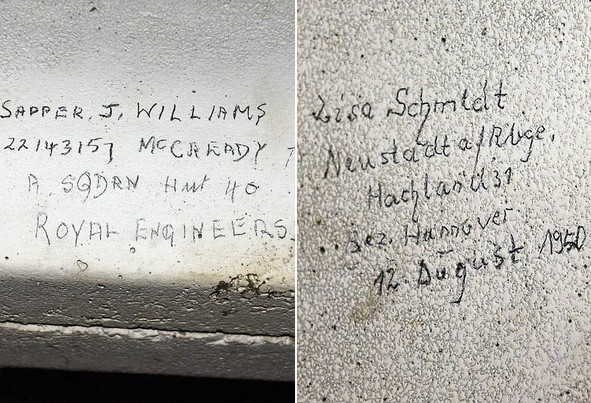 SAPPER. J. WILLIAMS
22143157 MCCREADY
A. SQDRN Hut 40
ROYAL ENGINEERS.
Lisa Schmidt
Neustadt a/Rbge.
Hachland 31
Bez. Hannover
12. August 1950